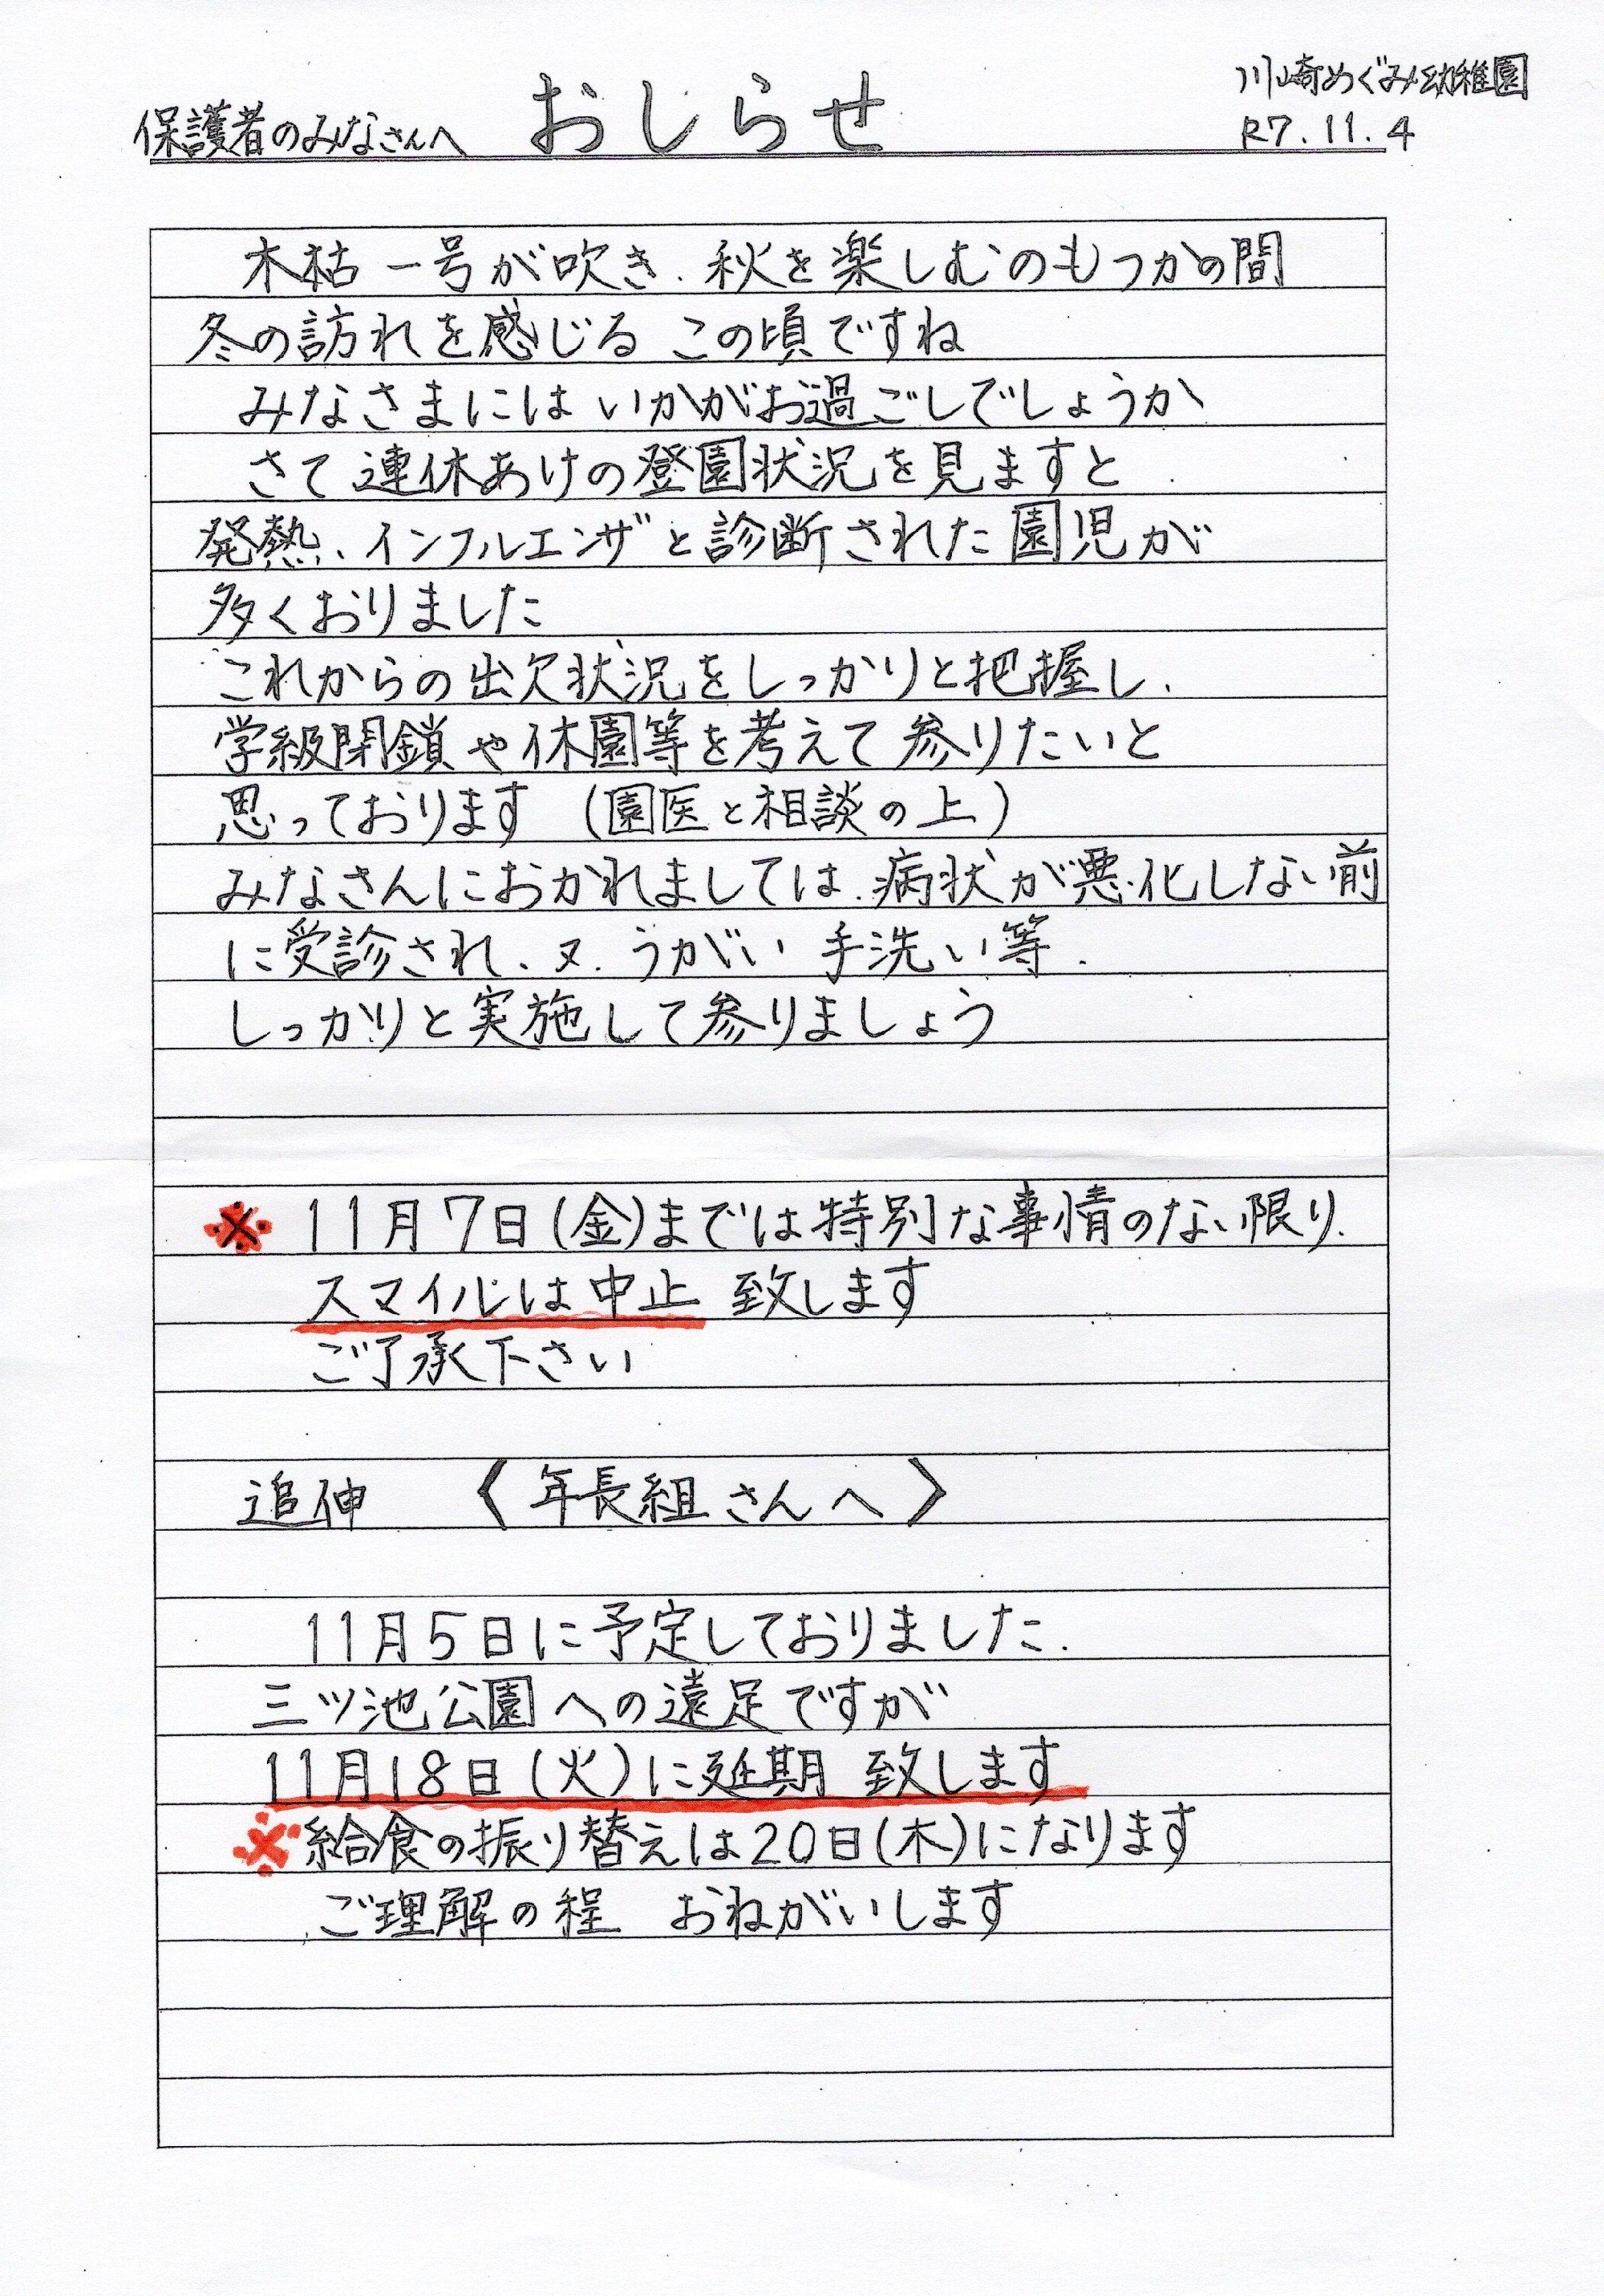 川崎めぐみ幼稚園
保護者のみなさんへ おしらせ R7.11.4
木枯一号が吹き、秋を楽しむのもつかの間
冬の訪れを感じる この頃ですね
みなさまにはいかがお過ごしでしょうか
さて連休あけの登園状況を見ますと
発熱、インフルエンザと診断された園児が
多くおりました
これからの出欠状況をしっかりと把握し、
学級閉鎖や休園等を考えて参りたいと
思っております (園医と相談の上)
みなさんにおかれましては、病状が悪化しない前
に受診され、又、うがい 手洗い等、
しっかりと実施して参りましょう
※ 11月7日(金)までは特別な事情のない限り、
スマイルは中止 致します
ご了承下さい
追伸 〈年長組さんへ〉
11月5日に予定しておりました、
三ツ池公園への遠足ですが
11月18日(火)に延期 致します
※給食の振り替えは20日(木)になります
ご理解の程 おねがいします